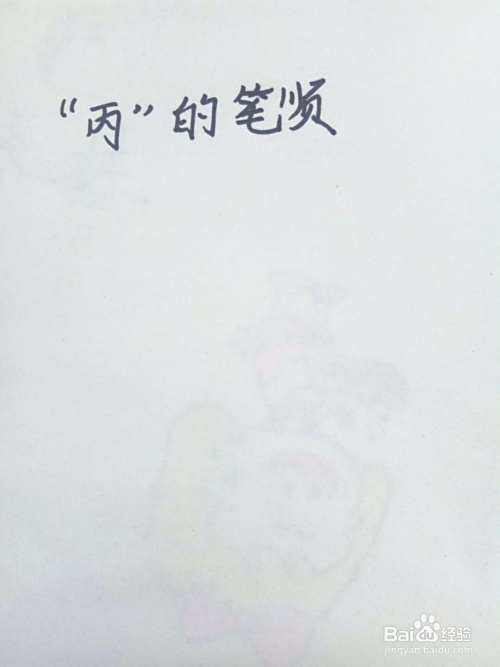 “丙”的笔顺
Bai百度经验
jingyan.baidu.com